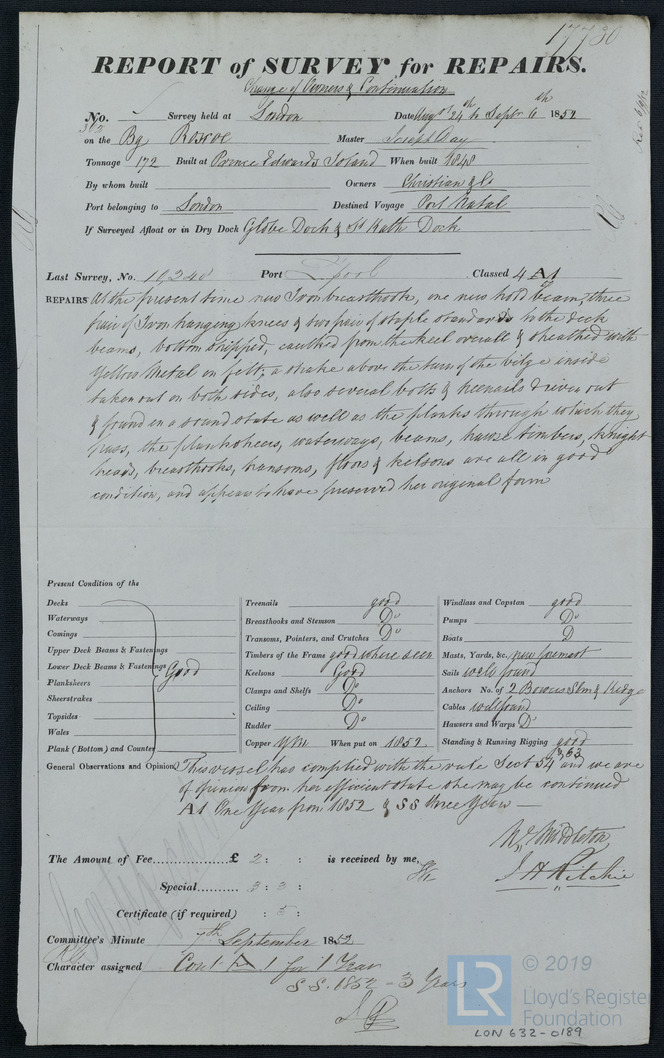 17730
REPORT of SURVEY for REPAIRS.
Change of Owners & Continuation
No. Survey held at London Date Augst 24th to Septr 6th 1852
on the Bg Roscoe Master Joseph Day
Tonnage 172 Built at Prince Edwards Island When built 1848
By whom built Owners Christian & Co
Port belonging to London Destined Voyage Port Natal
If Surveyed Afloat or in Dry Dock Globe Dock & St Kath Dock
Last Survey, No. 10,240 Port L'pool Classed 4 A1
REPAIRS At the present time new Iron breasthook, one new hold beam, three
pair of Iron hanging knees & two pair of staple standards to the deck
beams, bottom stripped, caulked from the keel overall & sheathed with
Yellow Metal on felt, a strake above the turn of the bilge inside
taken out on both sides, also several bolts & treenails driven out
& found in a sound state as well as the planks through which they
pass, the planksheers, waterways, beams, hawse timbers, knight
heads, breasthooks, transoms, floors & kelsons are all in good
condition, and appear to have preserved her original form
Present Condition of the
Decks
Waterways
Comings
Upper Deck Beams & Fastenings
Lower Deck Beams & Fastenings Good
Planksheers
Sheerstrakes
Topsides
Wales
Plank (Bottom) and Counter
Treenails good
Breasthooks and Stemson Do
Transoms, Pointers, and Crutches Do
Timbers of the Frame good where seen
Keelsons Good
Clamps and Shelfs Do
Ceiling Do
Rudder Do
Copper YM When put on 1852
Windlass and Capstan good
Pumps Do
Boats D
Masts, Yards, &c. new foremast
Sails well found
Anchors No. of 2 Bowers Stm & Kedge
Cables well found
Hawsers and Warps Do
Standing & Running Rigging good
General Observations and Opinion, This vessel has complied with the rule Sect 54 and we are
of opinion from her efficient state she may be continued
A1 One Year from 1852 & SS Three Years
Wm Middleton
J H Ritchie
The Amount of Fee £ 2 : : is received by me,
Special 3 : 3 :
Certificate (if required) : 5 :
Committee's Minute 7th September 1852
Character assigned Cont A 1 for 1 Year
S.S. 1852 - 3 Years
LR
© 2019
Lloyd's Register
Foundation
LON 632-0189